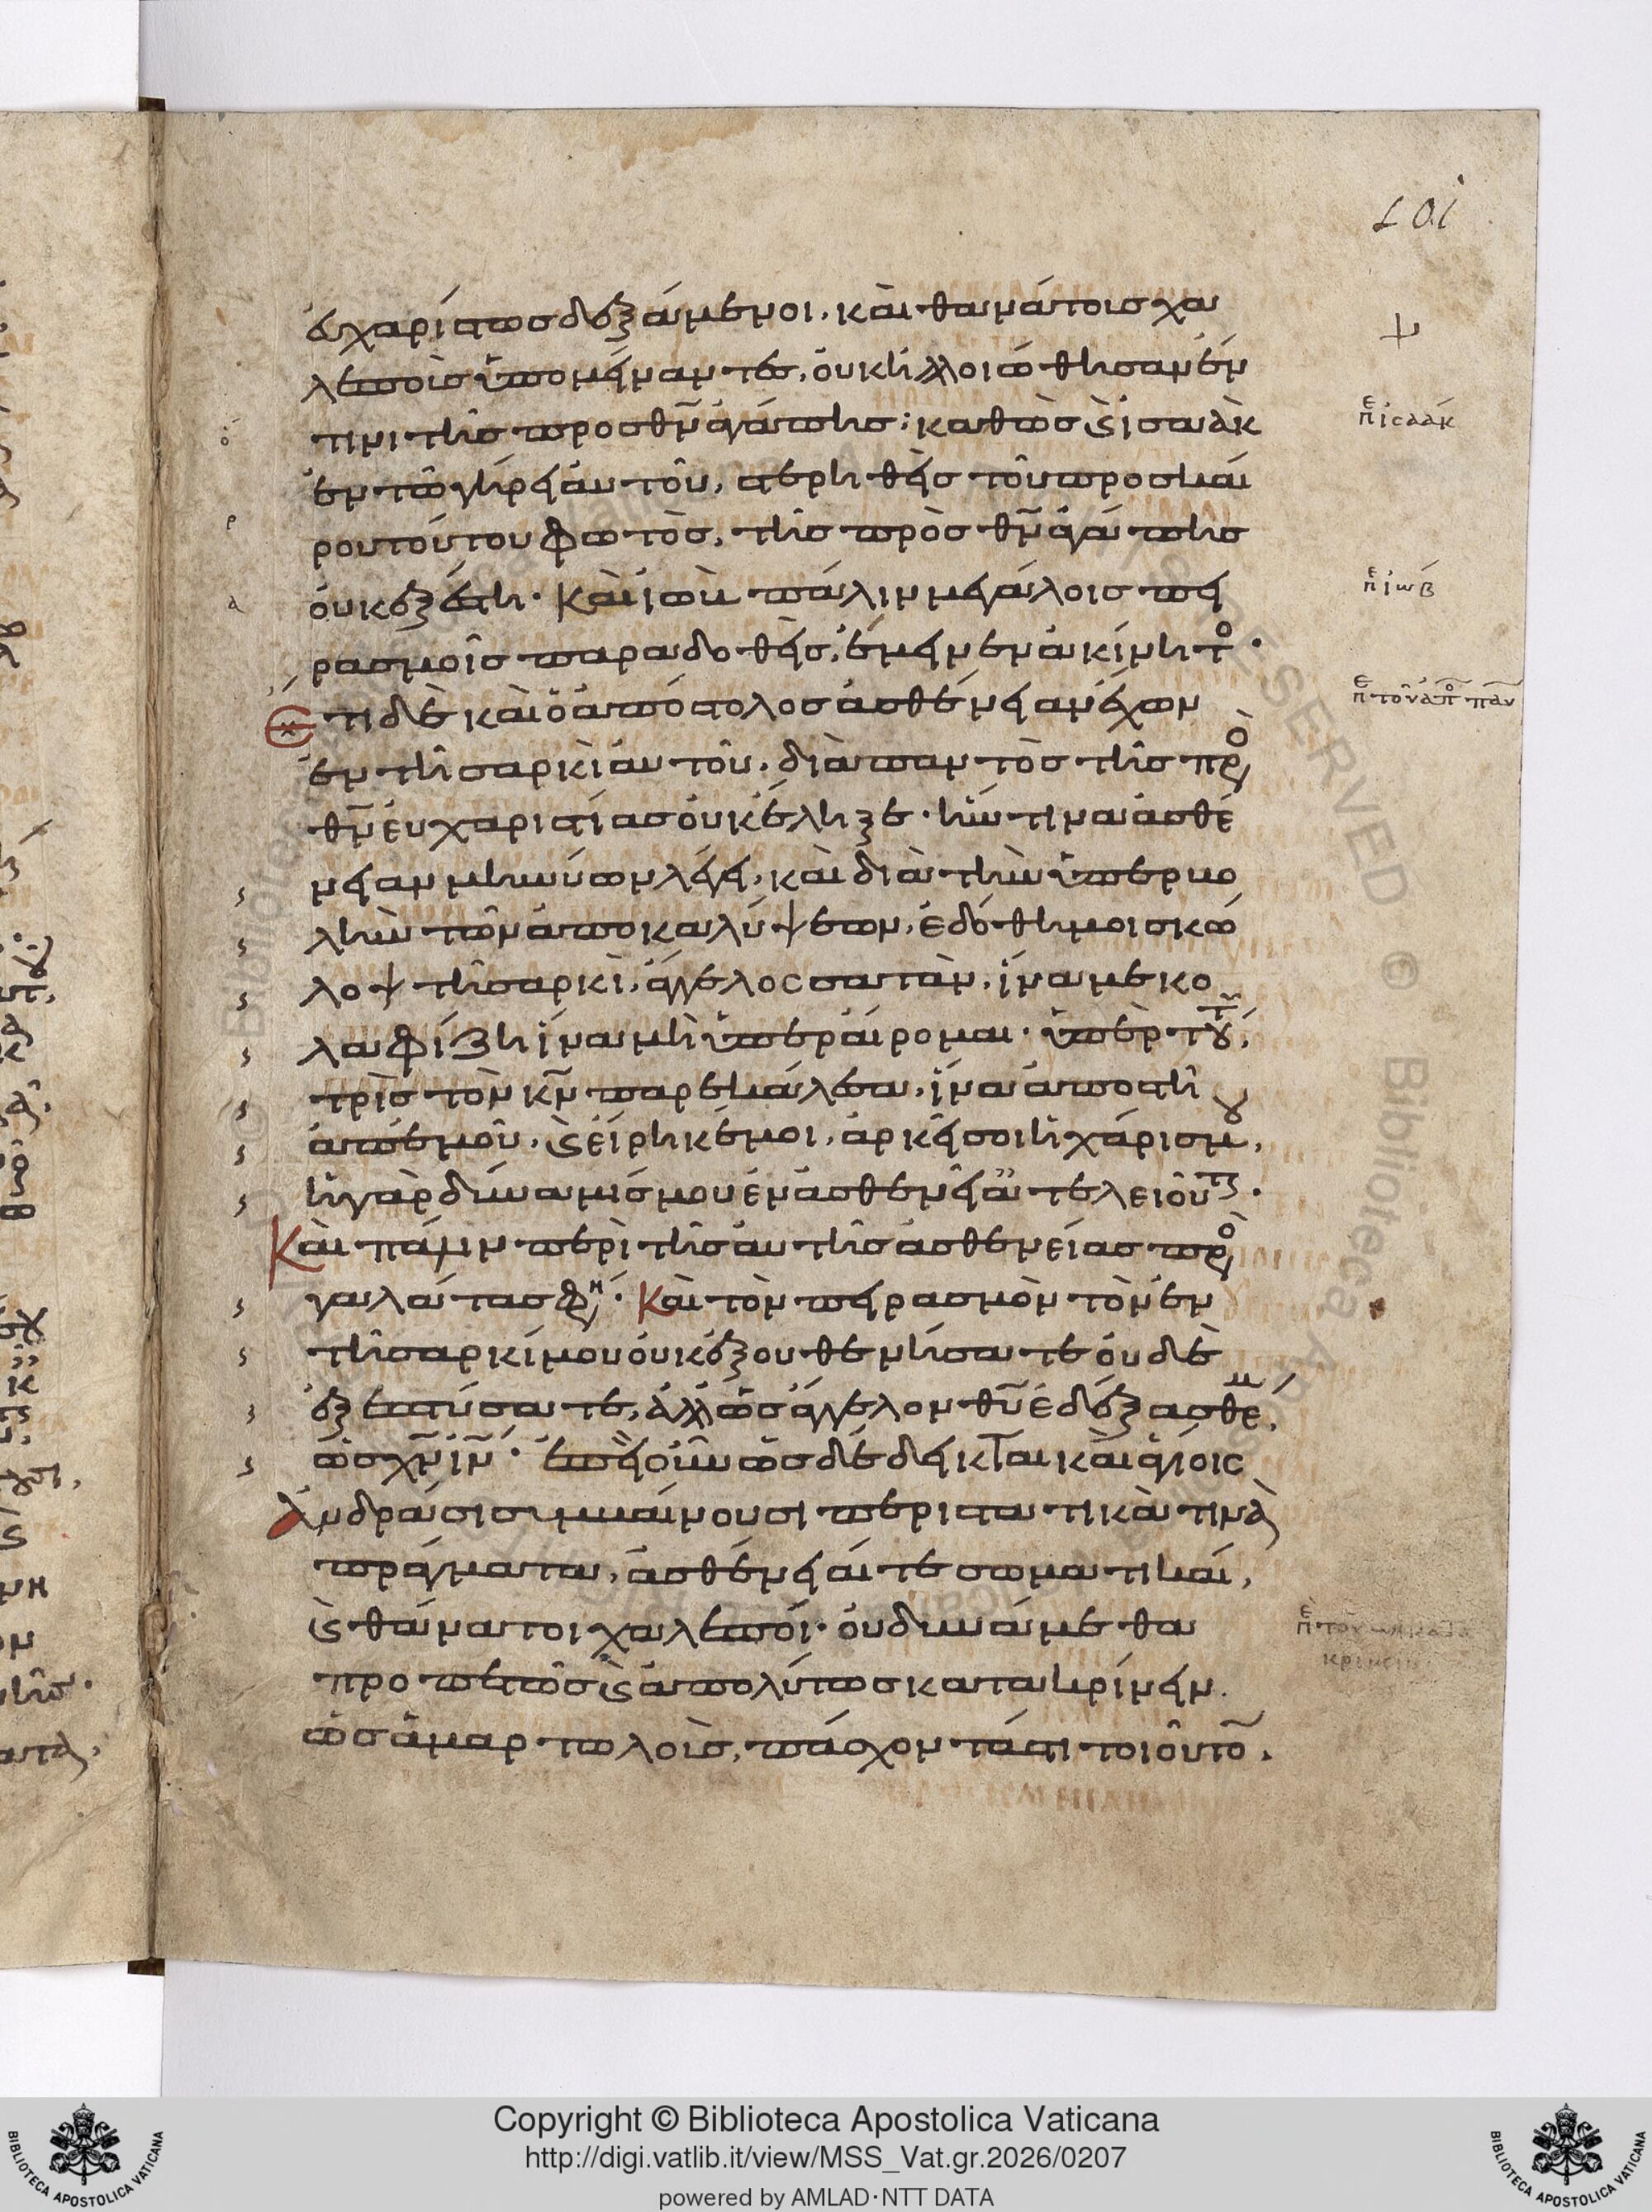 101
εὐχαρίστως δεξάμενοι, καὶ θανάτοις χα
λεποῖς ὑπομείναντες, οὐκ ἠλλοιώθησαν ἔν
τινι τῆς πρὸς θν ἀγάπης· καθὼς ϗ ἰσαὰκ
ἐν τῶ γήρει αὐτοῦ, στερηθεὶς τοῦ προσκαί
ρου τούτου φωτὸς, τῆς πρὸς θν ἀγάπης
οὐκ ἐξέστη. Καὶ ἰὼβ πάλιν μεγάλοις πει
ρασμοῖς παραδοθεὶς, ἔμεινεν ἀκίνητο.
Ἔτι δὲ καὶ ὁ ἀπόστολος ἀσθένειαν ἔχων
ἐν τῆ σαρκὶ αὐτοῦ, διὰ παντὸς τῆς πρὸ
θν εὐχαριστίας οὐκ ἔληξε. ἥντινα ἀσθέ
νειαν μηνύων λέγει, καὶ διὰ τὴν ὑπερβο
λὴν τῶν ἀποκαλύψεων, ἐδόθη μοι σκώ
λοψ τῆ σαρκὶ, ἄγγελος σατὰν, ἵνα με κο
λαφίζη ἵνα μὴ ὑπεραίρομαι. ὑπὲρ τού,
τρὶς τὸν κν παρεκάλεσα, ἵνα ἀποστῆ
ἀπ' ἐμοῦ. ϗ εἴρηκέ μοι, ἀρκεῖ σοι ἡ χάρις μου,
ἡ γὰρ δύναμίς μου ἐν ἀσθενείαις τελειοῦτ.
Καὶ πάλιν περὶ τῆς αὐτῆς ἀσθενείας πρὸ
γαλάτας φη. Καὶ τὸν πειρασμὸν τὸν ἐν
τῆ σαρκί μου οὐκ ἐξουθενήσατε οὐδὲ
ἐξεπτύσατε, ἀλλ' ὡς ἄγγελον θυ ἐδέξασθέ μ,
ὡς χν ιν. ἐπεὶ οὖν ὡς δέδεικται καὶ ἁγίοις
Ἀνδράσι συμβαίνουσι περιστατικά τινα
πράγματα, ἀσθένειαί τε σωματικαί,
ϗ θάνατοι χαλεποί. οὐ δυνάμεθα
προπετῶς ϗ ἀπολύτως κατακρίνειν.
ὡς ἁμαρτωλοῖς, πάσχοντάς τι τοιοῦτο.
ψ
πε ἰσαάκ
πε ἰώβ
πε τοῦ ἀπο παυ
ὁ
ρ
α
Copyright © Biblioteca Apostolica Vaticana
http://digi.vatlib.it/view/MSS_Vat.gr.2026/0207
powered by AMLAD·NTT DATA
BIBLIOTECA APOSTOLICA VATICANA
BIBLIOTECA APOSTOLICA VATICANA